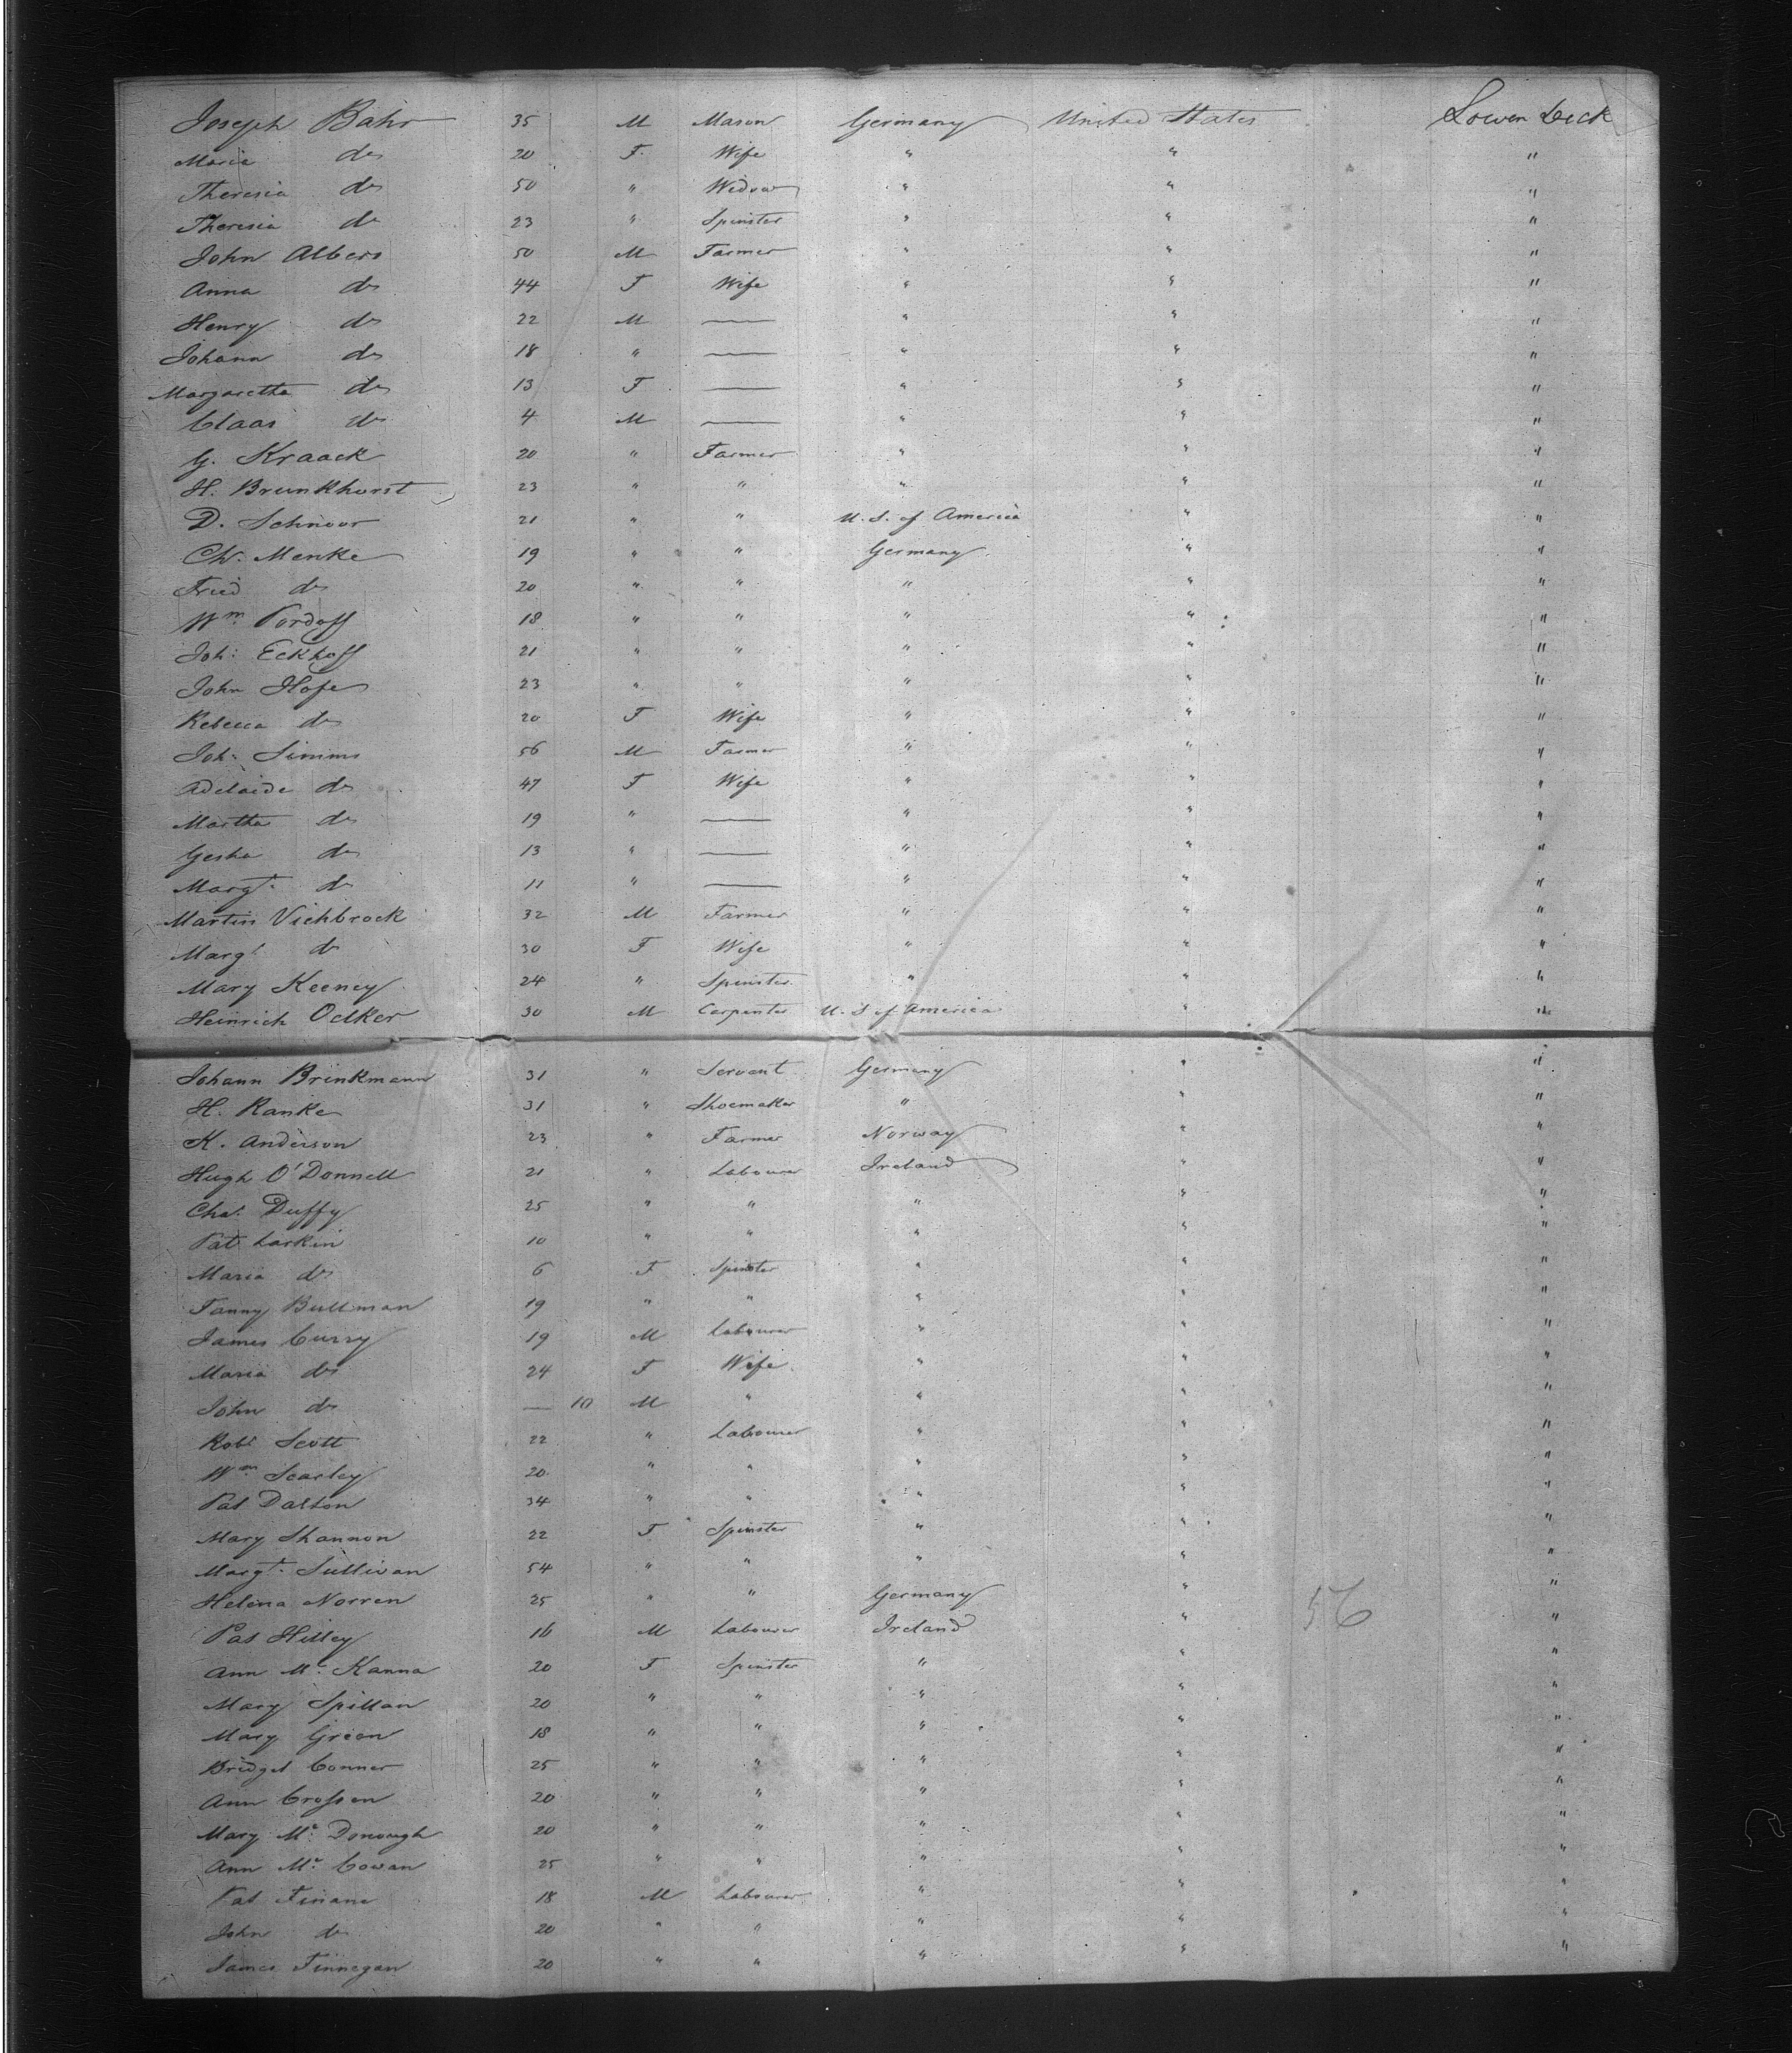 Joseph Bahr 35 M Mason Germany United States Lower Deck
Maria do 20 F. Wife " " "
Theresia do 50 " Widow " " "
Theresia do 23 " Spinster " " "
John Albers 50 M Farmer " " "
Anna do 44 F Wife " " "
Henry do 22 M — " " "
Johann do 18 " — " " "
Margaretha do 13 F — " " "
Claas do 4 M — " " "
G. Kraack 20 " Farmer " " "
H. Brunkhorst 23 " " " " "
D. Schnoor 21 " " U. S. of America " "
Ch. Menke 19 " " Germany " "
Fried do 20 " " " " "
Wm. Pordoff 18 " " " " "
Joh: Eckhoff 21 " " " " "
John Hofe 23 " " " " "
Rebecca do 20 F Wife " " "
Joh: Simms 56 M Farmer " " "
Adelaide do 47 F Wife " " "
Martha do 19 " — " " "
Geska do 13 " — " " "
Margt. do 11 " — " " "
Martin Viehbrock 32 M Farmer " " "
Margt do 30 F Wife " " "
Mary Keeney 24 " Spinster " " "
Heinrich Oelker 30 M Carpenter U. S of America " "
Johann Brinkmann 31 " Servant Germany " "
H. Ranke 31 " Shoemaker " " "
K. Anderson 23 " Farmer Norway " "
Hugh O'Donnell 21 " Labourer Ireland " "
Chas. Duffy 25 " " " " "
Pat Larkin 10 " " " " "
Maria do 6 F Spinster " " "
Fanny Bullman 19 " " " " "
James Curry 19 M Labourer " " "
Maria do 24 F Wife " " "
John do — 10 M " " " "
Robt Scott 22 " Labourer " " "
Wm. Scarley 20 " " " " "
Pat Dalton 34 " " " " "
Mary Shannon 22 F Spinster " " "
Margt. Sullivan 54 " " " " "
Helena Norren 25 " " Germany " 56 "
Pat Hilley 16 M Labourer Ireland " "
Ann Mc. Kanna 20 F Spinster " " "
Mary Spillan 20 " " " " "
Mary Green 18 " " " " "
Bridget Conner 25 " " " " "
Ann Crossen 20 " " " " "
Mary Mc. Donough 20 " " " " "
Ann Mc. Cowan 25 " " " " "
Pat Finane 18 M Labourer " " "
John do 20 " " " " "
James Finnegan 20 " " " " "